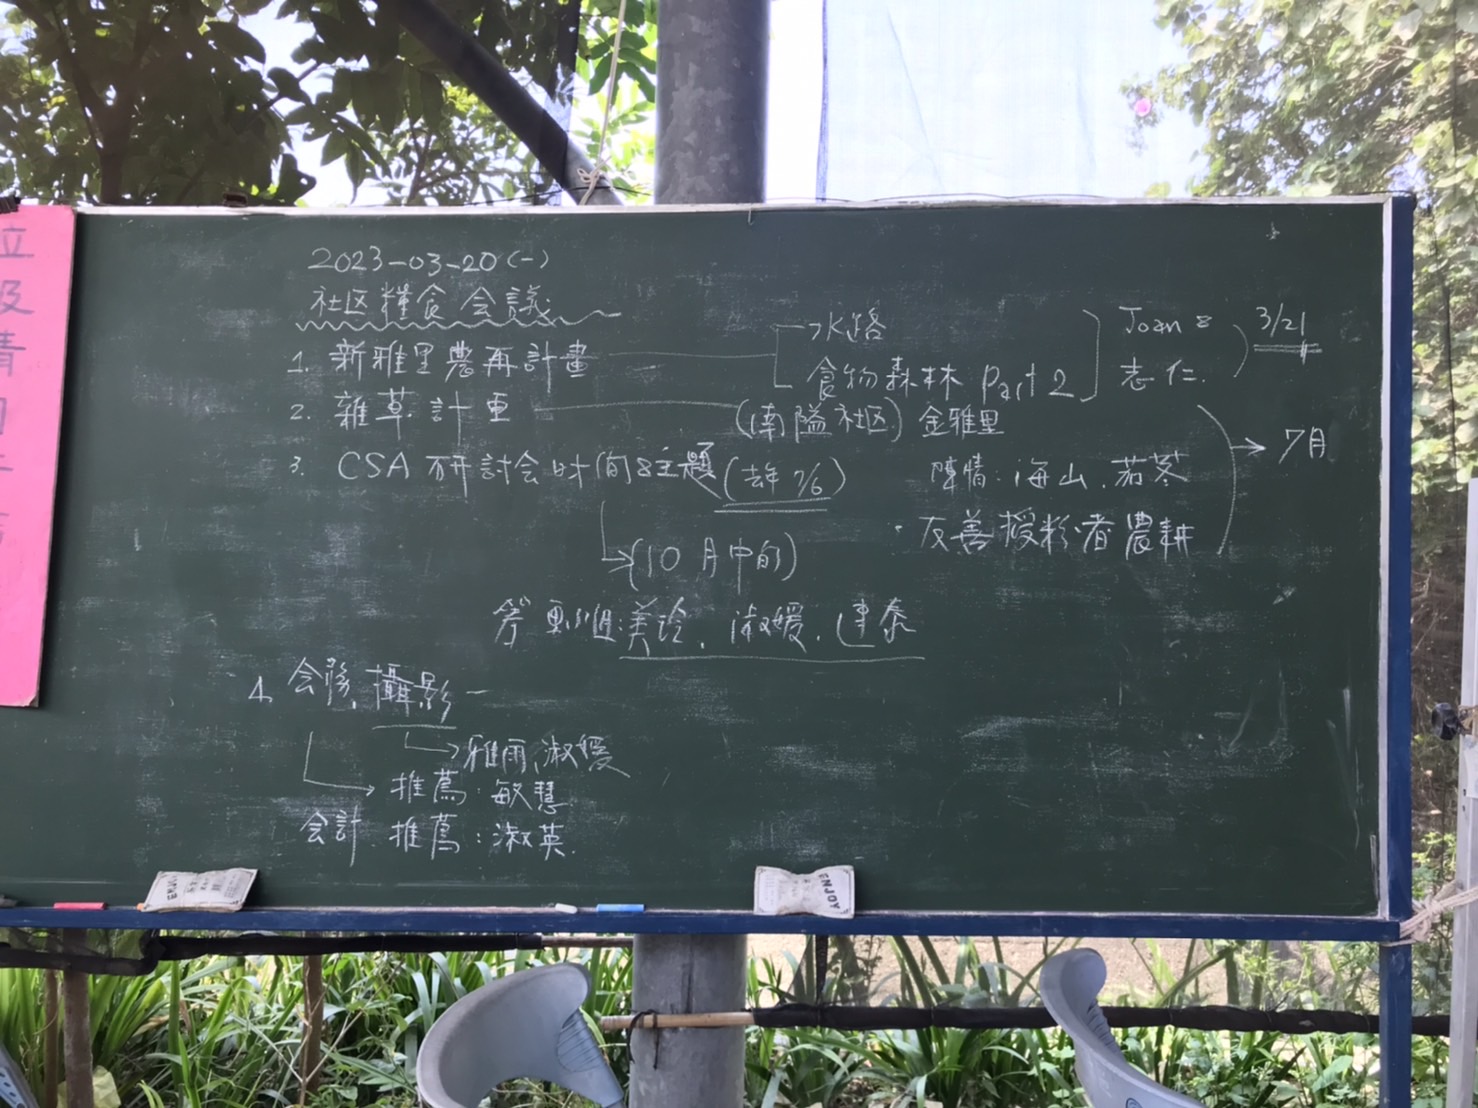 2023-03-20(一)
社区糧食会議
1. 新雅里農再計畫
水路
食物森林 Part 2
Joan &
志仁.
3/21
2. 雜草計画
(南隘社区) 金雅里
陳情: 海山. 茄苳
· 友善授粉者農耕
→ 7月
3. CSA 研討会时间&主題(去年 7/6)
→(10月中旬)
筹画小組:美玲. 淑媛. 建泰
4. 会務. 攝影
→雅雨 淑媛
→ 推薦: 敏慧
会計 推薦: 淑英.
ENJOY